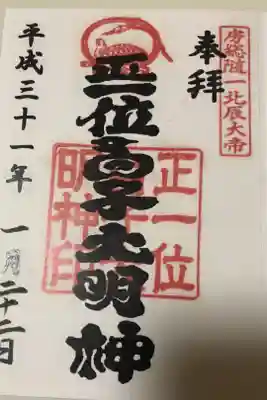 房総随一北辰大帝
奉拝
正一位高子大明神
正一位
明神印
平成三十一年 一月二十二日